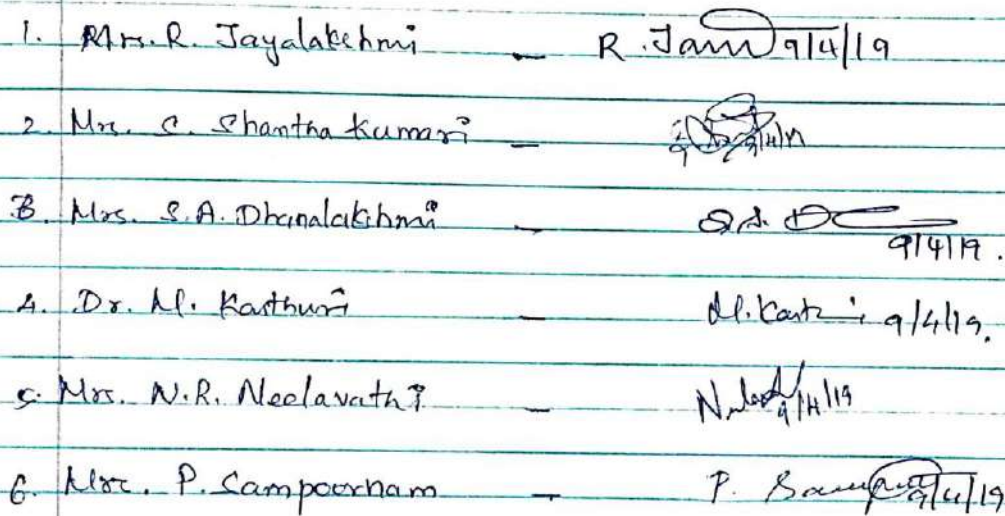 1. Mrs. R. Jayalakshmi - R. Jam 9/4/19
2. Mrs. S. Shantha Kumari - 9/4/19
3. Mrs. S.A. Dhanalakshmi - S.A. D 9/4/19.
4. Dr. M. Kasthuri - M. Kast 9/4/19.
5. Mrs. N.R. Neelavathi - 9/4/19
6. Mrs. P. Sampoornam - P. 9/4/19